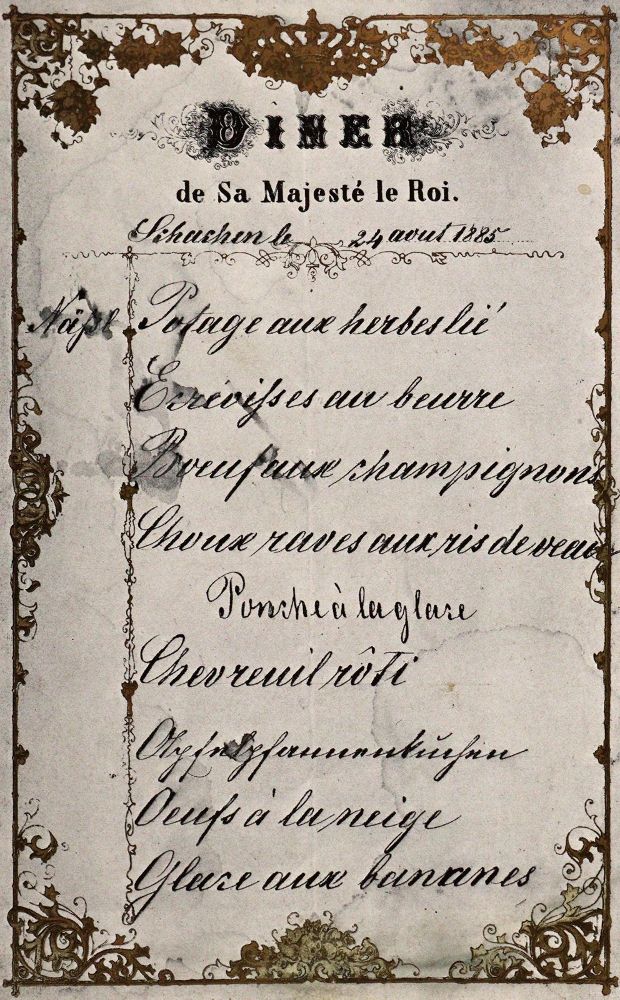 DINER
de Sa Majesté le Roi.
Schachen le 24 août 1885
Näpl Potage aux herbes lié
Ecrevisses au beurre
Bœuf aux champignons
Choux raves aux ris de veau
Punsche à la glace
Chevreuil rôti
Apfelpfannenkuchen
Oeufs à la neige
Glace aux bananes